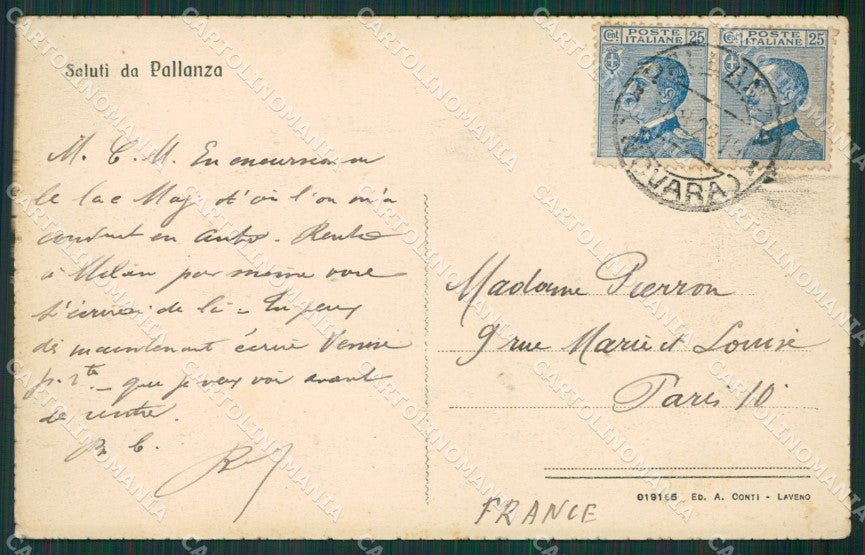 Saluti da Pallanza
M. C. M. En excursion sur
le lac Maj d'où l'on m'a
conduit en auto. Rentre
à Milan par même voie
t'écrirai de là - Tu peux
dès maintenant écrire Venise
p. r.te - que je veux voir avant
de rentrer.
B. C.
Cent POSTE ITALIANE 25
Cent POSTE ITALIANE 25
(NOVARA)
Madame Pierron
9 rue Marie et Louise
Paris 10e
FRANCE
019165 ED. A. CONTI - LAVENO
CARTOLINOMANIA